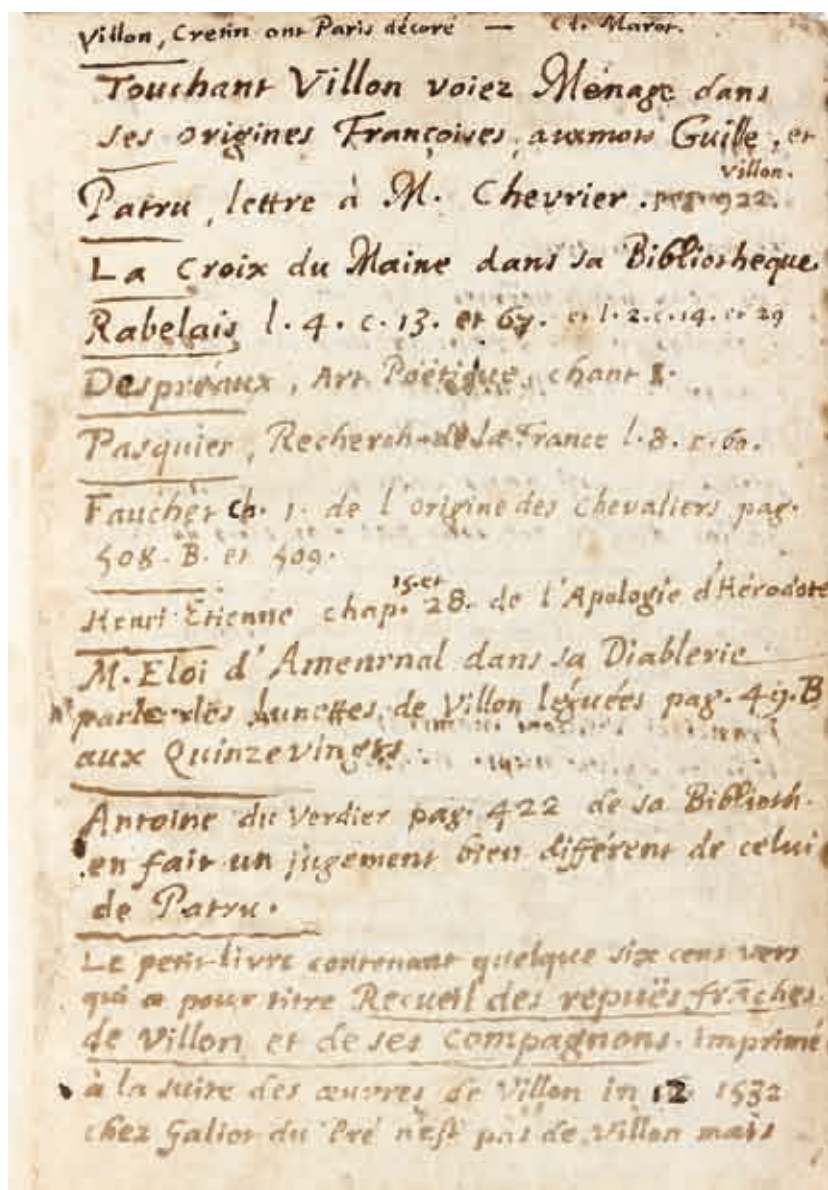 Villon, Cretin ont Paris décoré — Cl. Marot.
Touchant Villon voiez Ménage dans
ses origines Françoises, aux mots Guille, et
Villon.
Patru, lettre à M. Chevrier. pag. 922.
La Croix du Maine dans sa Bibliotheque
Rabelais l. 4. c. 13. et 67. et l. 2. c. 14. et 29
Despréaux, Art Poëtique, chant 1.
Pasquier, Recherch. de la France l. 8. c. 60.
Fauchet ch. 1. de l'origine des Chevaliers pag.
508. B. et 509.
15. et
Henri Etienne chap. 28. de l'Apologie d'Hérodote
M. Eloi d'Amernal dans sa Diablerie
parle des lunettes de Villon léguées pag. 49. B
aux Quinzevingts.
Antoine du Verdier pag. 422 de sa Biblioth.
en fait un jugement bien différent de celui
de Patru.
Le petit livre contenant quelque six cent vers
qui a pour titre Recueil des repuës frāches
de Villon et de ses compagnons. imprimé
à la suite des œuvres de Villon in 12 1532
chez Galiot du Pré n'est pas de Villon mais